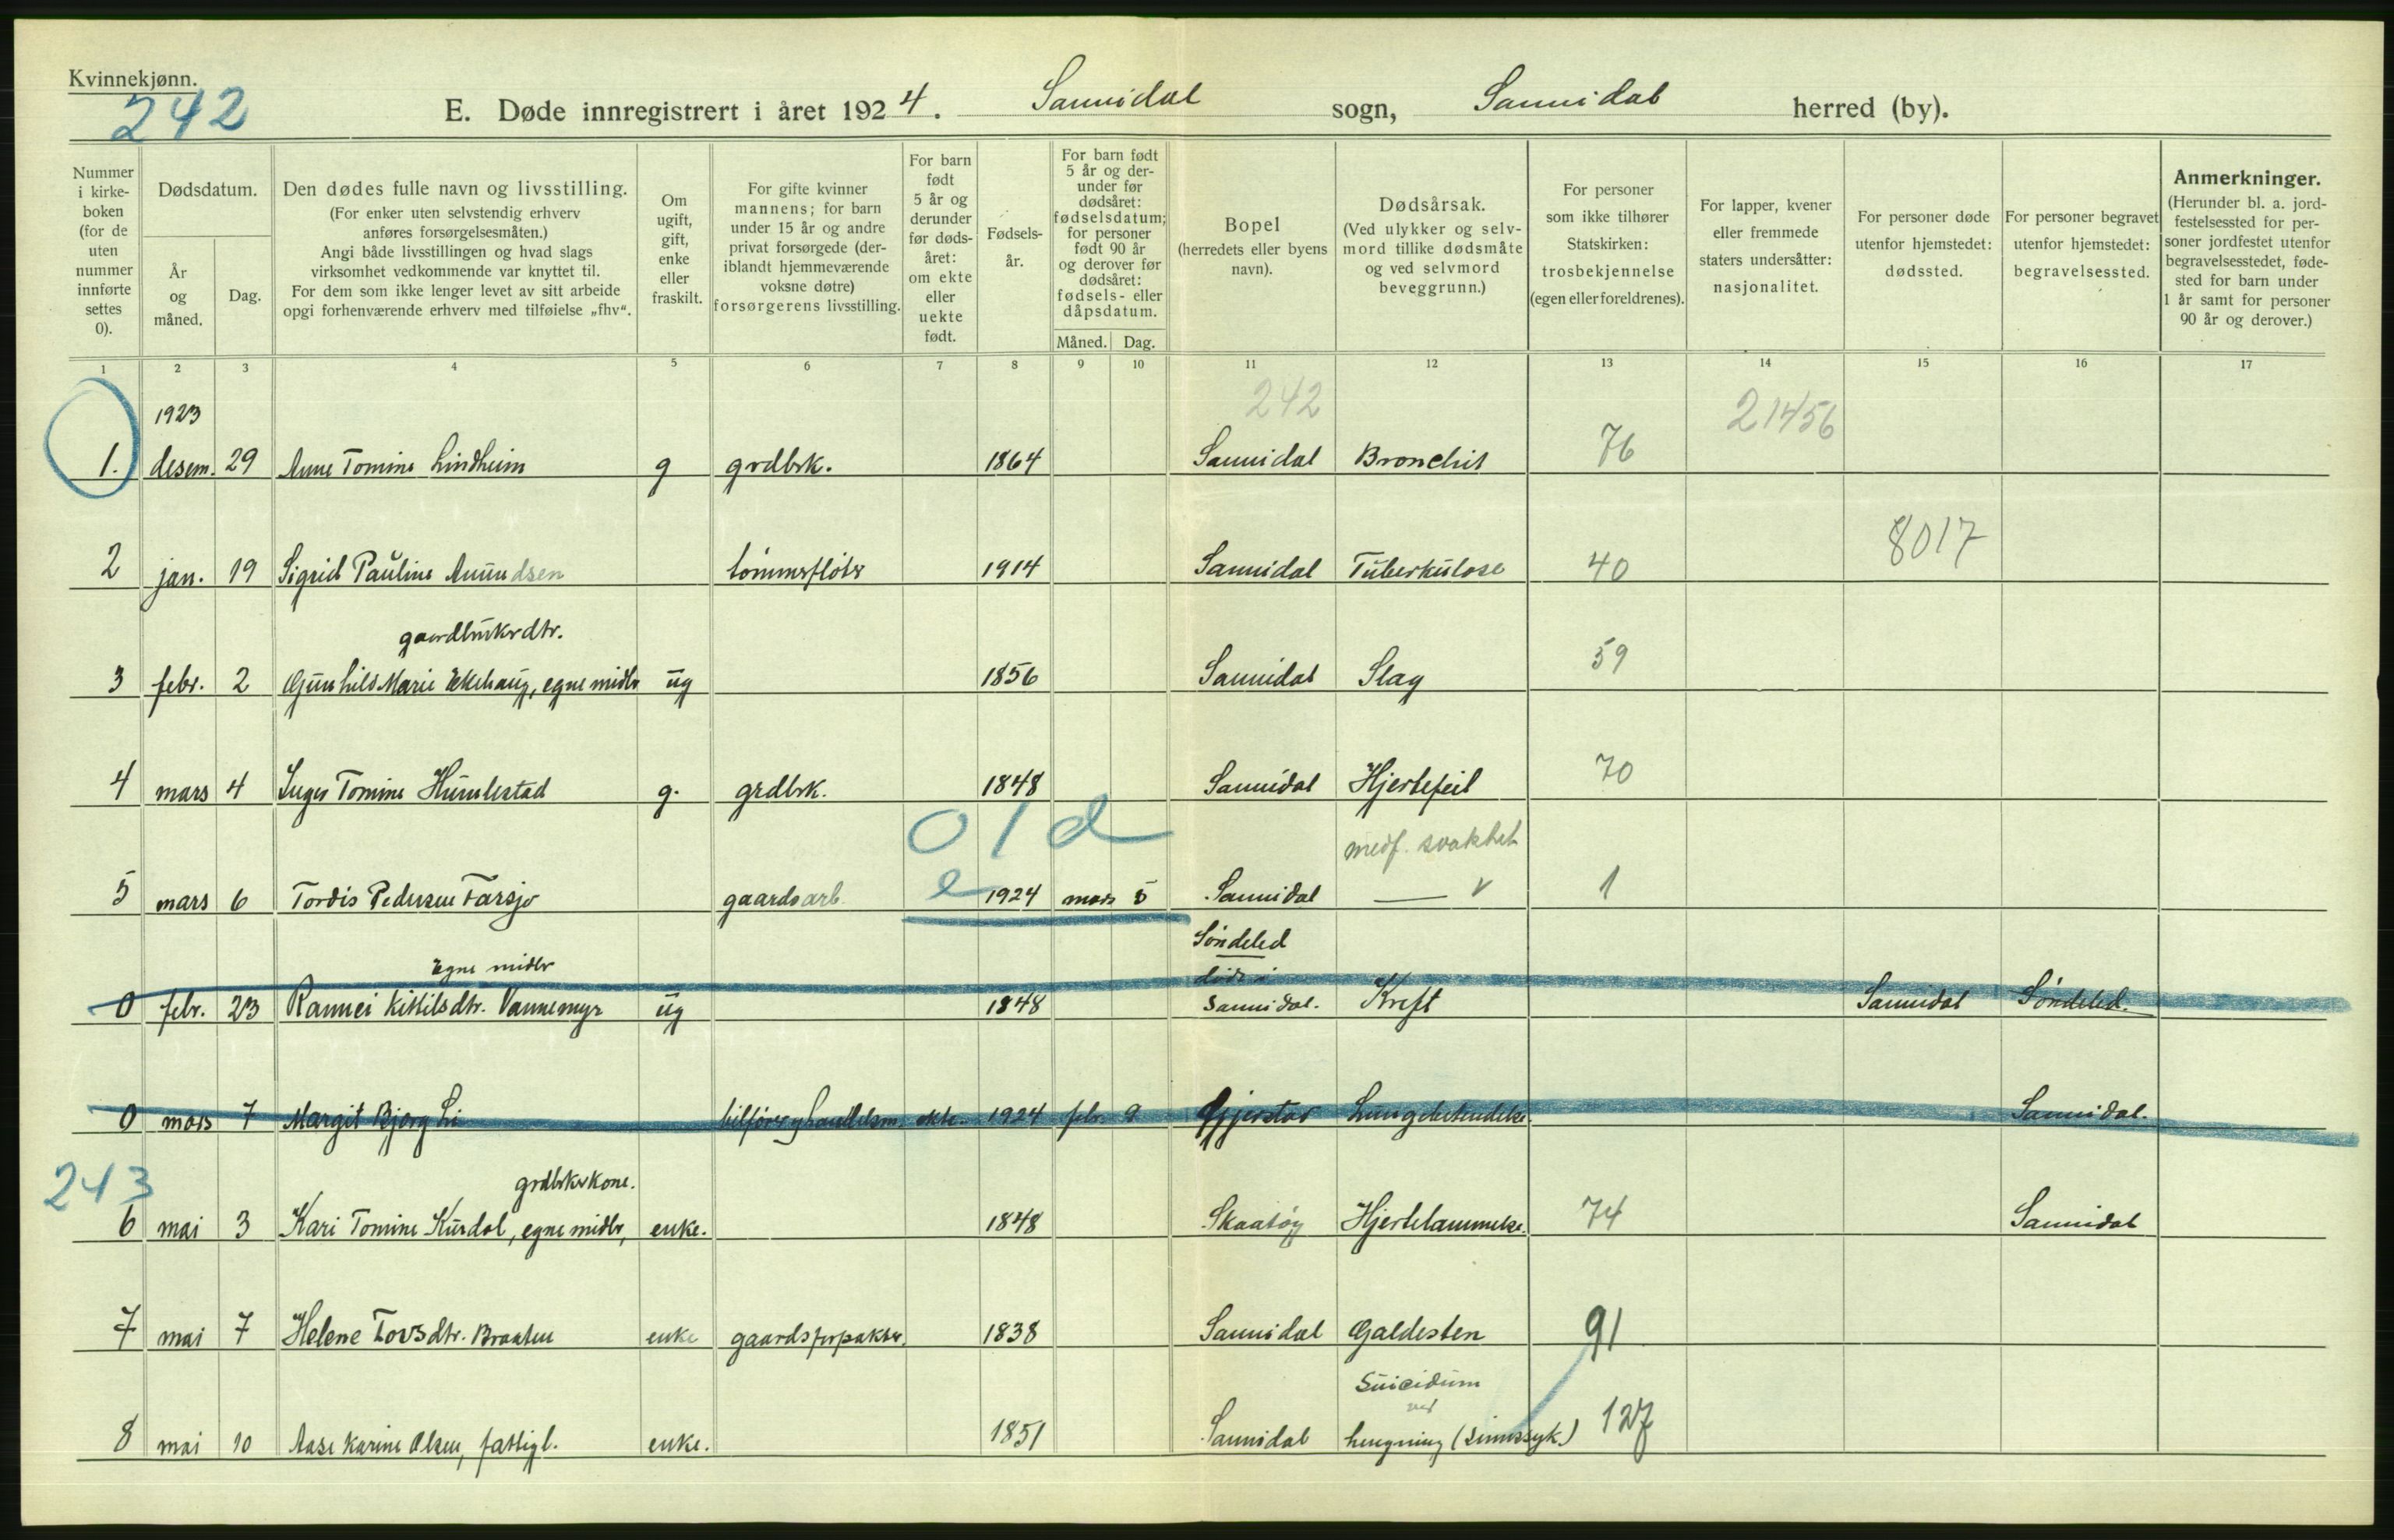 Kvinnekjønn.
242
E. Døde innregistrert i året 1924. Sannidal sogn, Sannidal herred (by).
Nummer i kirke-boken (for de uten nummer innførte settes 0).
Dødsdatum.
År og måned.
Dag.
Den dødes fulle navn og livsstilling.
(For enker uten selvstendig erhverv anføres forsørgelsesmåten.)
Angi både livsstillingen og hvad slags virksomhet vedkommende var knyttet til.
For dem som ikke lenger levet av sitt arbeide opgi forhenværende erhverv med tilføielse „fhv“.
Om ugift, gift, enke eller fraskilt.
For gifte kvinner mannens; for barn under 15 år og andre privat forsørgede (deriblandt hjemmeværende voksne døtre) forsørgerens livsstilling.
For barn født 5 år og derunder før dødsåret: om ekte eller uekte født.
Fødsels-år.
For barn født 5 år og derunder før dødsåret: fødselsdatum; for personer født 90 år og derover før dødsåret: fødsels- eller dåpsdatum.
Måned. Dag.
Bopel (herredets eller byens navn).
Dødsårsak. (Ved ulykker og selvmord tillike dødsmåte og ved selvmord beveggrunn.)
For personer som ikke tilhører Statskirken: trosbekjennelse (egen eller foreldrenes).
For lapper, kvener eller fremmede staters undersåtter: nasjonalitet.
For personer døde utenfor hjemstedet: dødssted.
For personer begravet utenfor hjemstedet: begravelsessted.
Anmerkninger. (Herunder bl. a. jordfestelsessted for personer jordfestet utenfor begravelsesstedet, fødested for barn under 1 år samt for personer 90 år og derover.)
1 2 3 4 5 6 7 8 9 10 11 12 13 14 15 16 17
1923 242 21456
1. desem. 29 Anne Tomine Lindheim g grdbrk. 1864 Sannidal Bronchit 76
8017
2 jan. 19 Sigrid Pauline Amundsen tømmerfløter 1914 Sannidal Tuberkulose 40
gaardbrukerdtr.
3 febr. 2 Gunhild Marie Ekehaug, egne midler ug 1856 Sannidal Slag 59
4 mars 4 Inger Tomine Humlestad g. grdbrk. 1848 Sannidal Hjertefeil 70
0 1 d medf. svakhet
5 mars 6 Tordis Pedersen Farsjø gaardsarb. e 1924 mars 5 Sannidal — v 1
Søndeled
Egne midler døde i
0 febr. 23 Rannei Kittilsdtr. Vannemyr ug 1848 Sannidal. Kreft Sannidal Søndeled.
0 mars 7 Margit Bjørg Li bilfører y handelsm. ekte. 1924 febr. 9 Gjerstad Lungebetendelse. Sannidal.
243 grdbrkrkone.
6 mai 3 Kari Tomine Kurdøl, egne midler, enke. 1848 Skaatøy Hjertelammelse. 74 Sannidal
7 mai 7 Helene Tovsdtr. Braaten enke gaardsforpakter. 1838 Sannidal Galdesten 91
Suicidum
ved
8 mai 10 Aase Karine Olsen, fattigl. enke. 1851 Sannidal hengning (sinnssyk.) 127